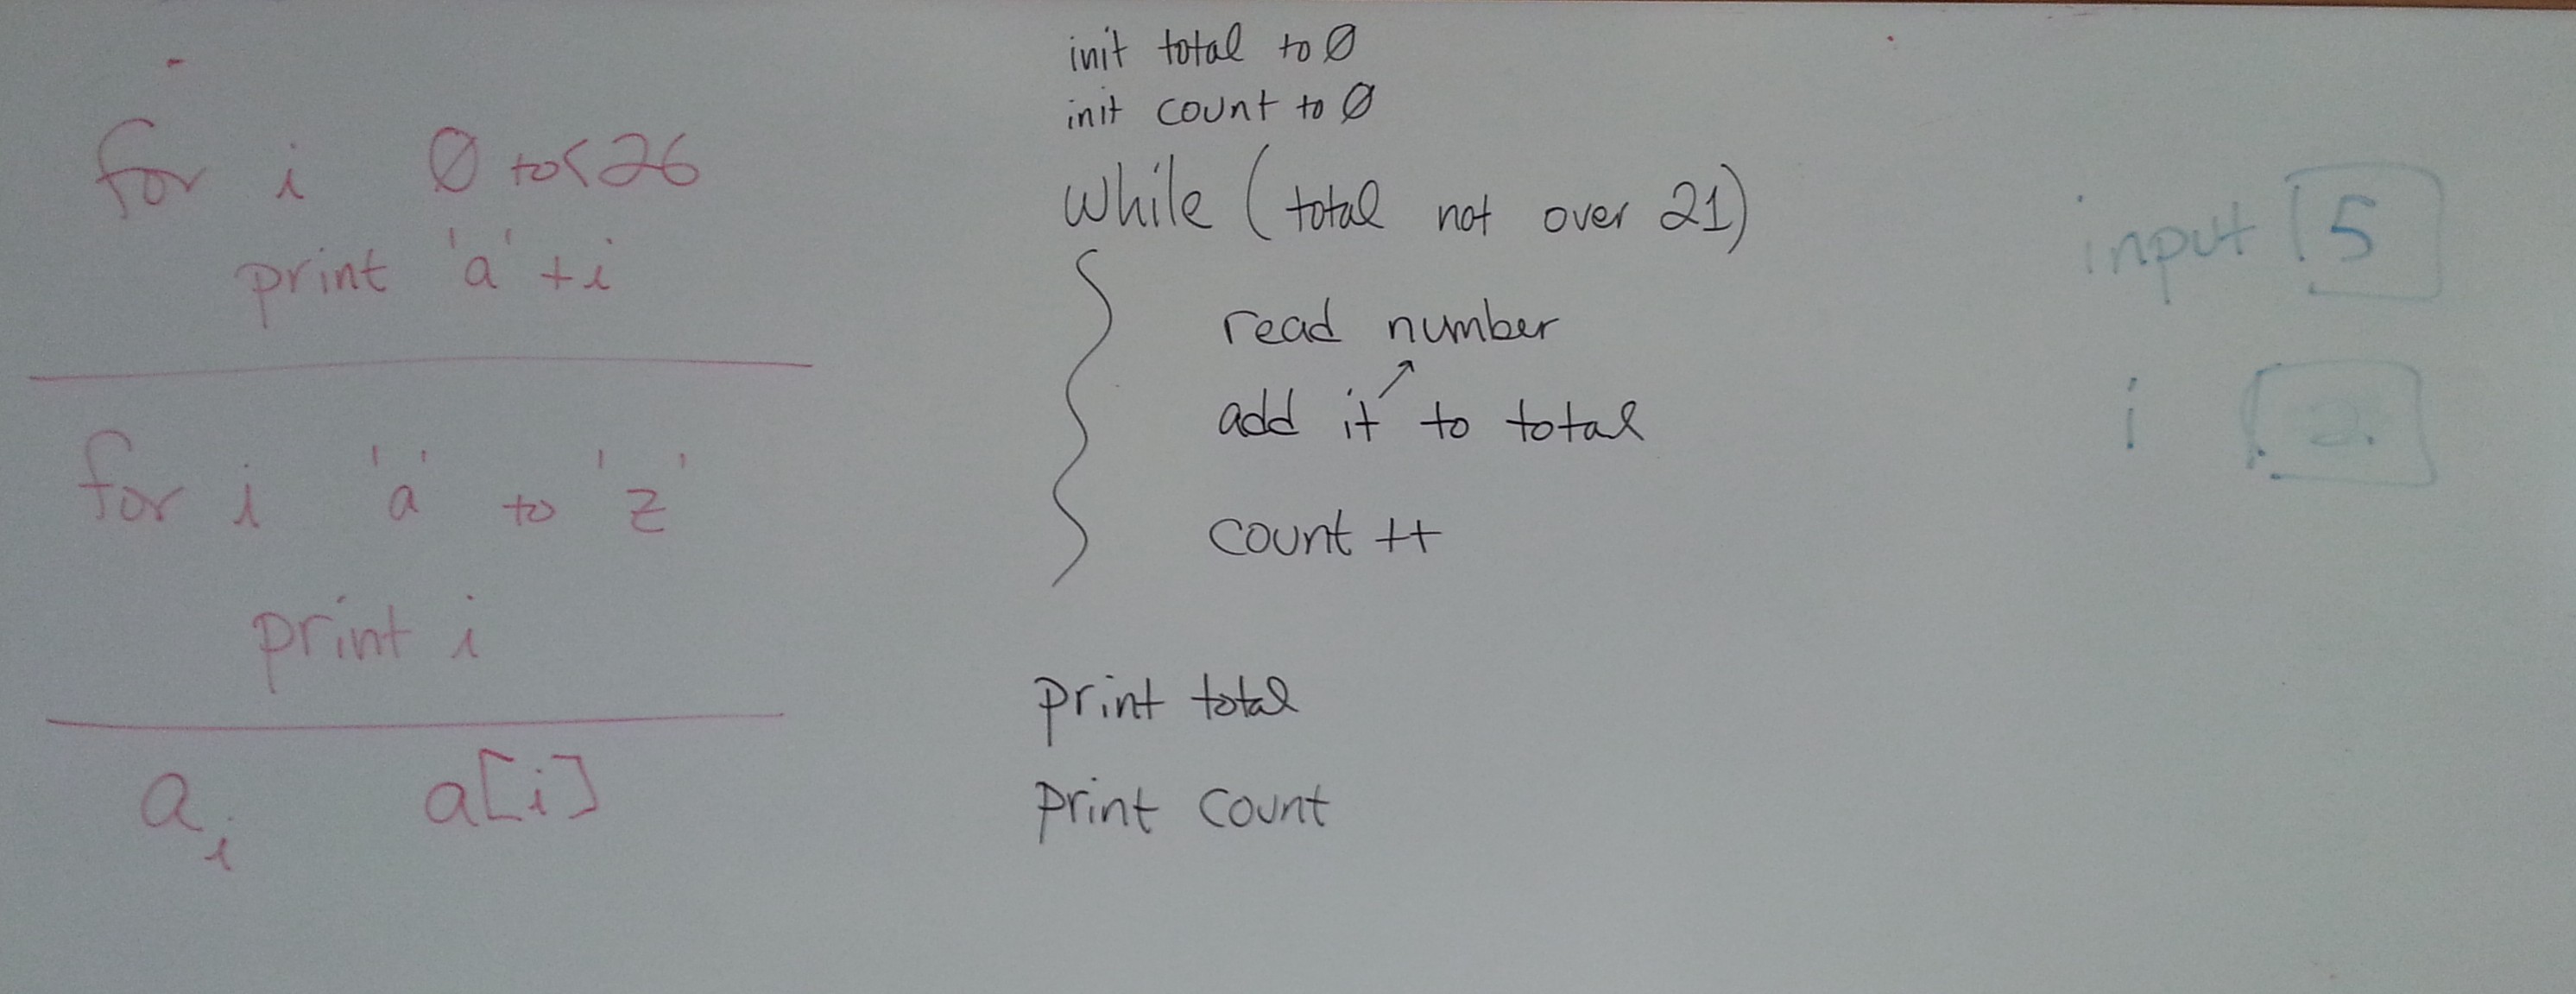 for i 0 to <26
print 'a' + i
for i 'a' to 'z'
print i
a i a[i]
init total to 0
init count to 0
while (total not over 21)
{
read number
add it to total
count ++
print total
print count
input 5
i 2